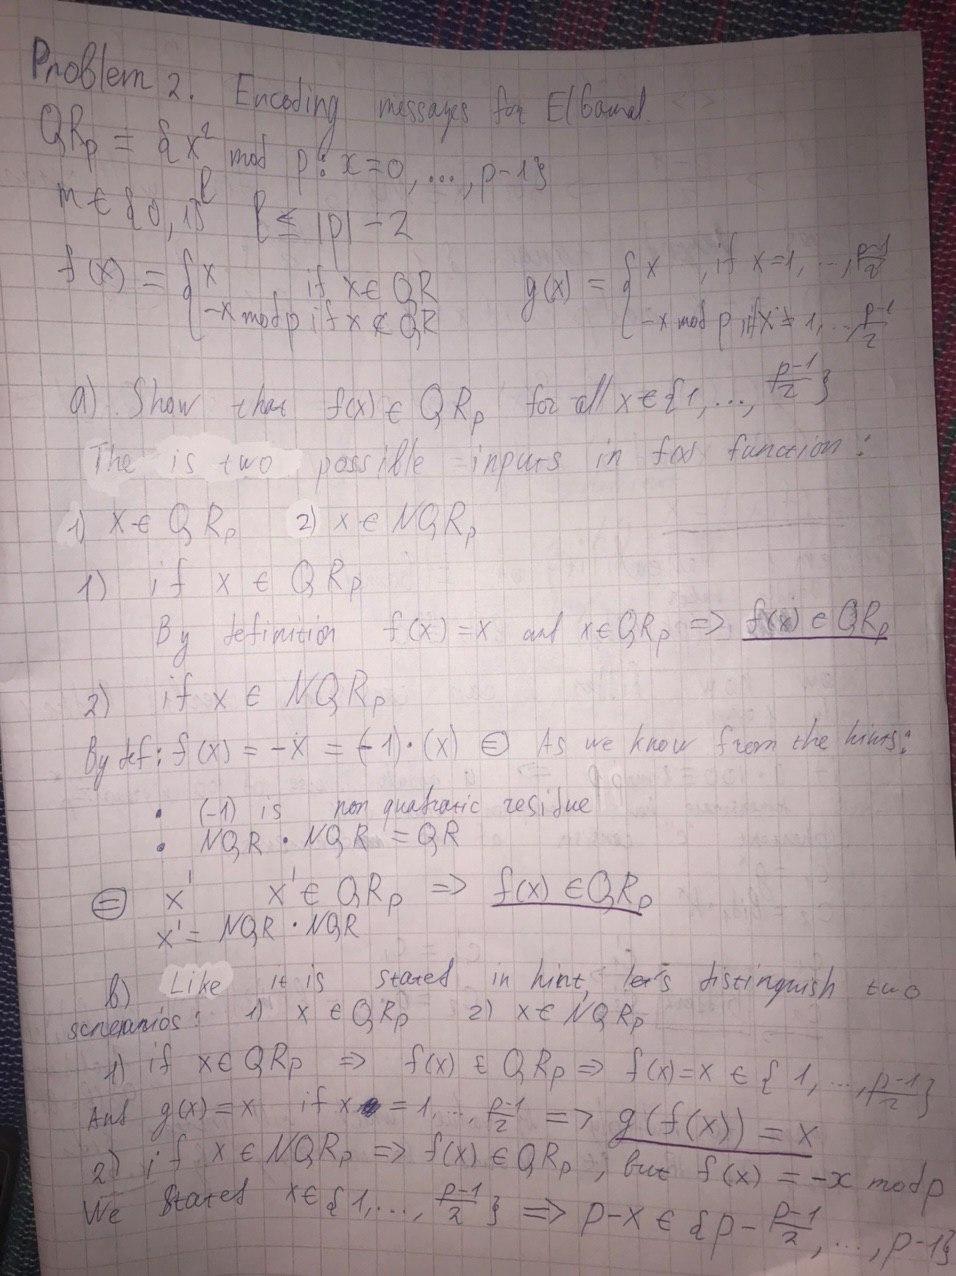 Problem 2. Encoding messages for ElGamal.
QRp = { x² mod p : x=0,...,p-1}
m ∈ {0,1}^l l ≤ |p| - 2
f(x) = { x , if x ∈ QR g(x) = { x , if x=1, ..., p-1/2
-x mod p if x ∉ QR -x mod p, if x ≠ 1, ..., p-1/2
a) Show that f(x) ∈ QRp for all x ∈ {1, ..., p-1/2}
The is two possible inputs in f(x) function:
1) x ∈ QRp 2) x ∈ NQRp
1) if x ∈ QRp
By definition f(x) = x and x ∈ QRp => f(x) ∈ QRp
2) if x ∈ NQRp
By def: f(x) = -x = (-1)·(x) ⊜ As we know from the hints:
• (-1) is non quatratic residue
• NQR · NQR = QR
⊜ x' x' ∈ QRp => f(x) ∈ QRp
x' = NQR · NQR
b) Like it is stated in hint, let's distinguish two
scneranios: 1) x ∈ QRp 2) x ∈ NQRp
1) if x ∈ QRp => f(x) ∈ QRp => f(x) = x ∈ { 1, ..., p-1/2 }
And g(x) = x if x = 1, ..., p-1/2 => g(f(x)) = x
2) if x ∈ NQRp => f(x) ∈ QRp, but f(x) = -x mod p
We stated x ∈ {1, ..., p-1/2 } => p-x ∈ {p - p-1/2, ..., p-1}